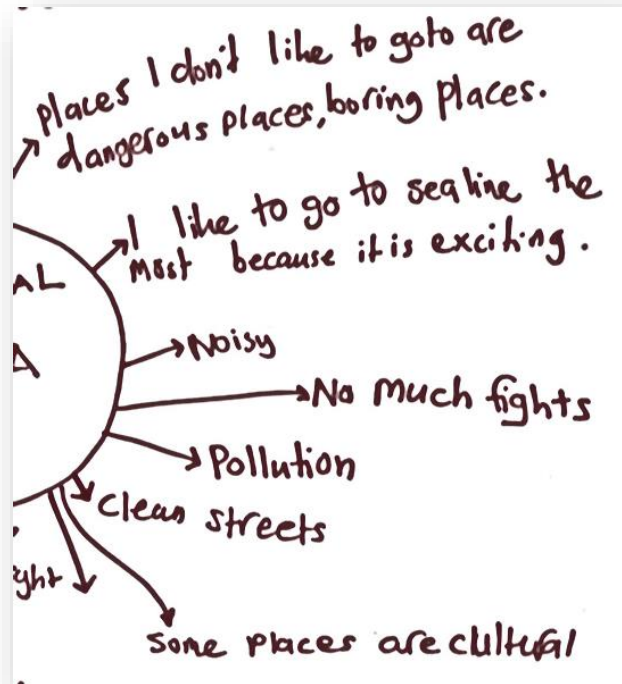 places I don't like to goto are
dangerous places, boring places.
I like to go to sealine the
most because it is exciting.
AL
A
Noisy
No much fights
Pollution
Clean streets
ght
Some places are cultural